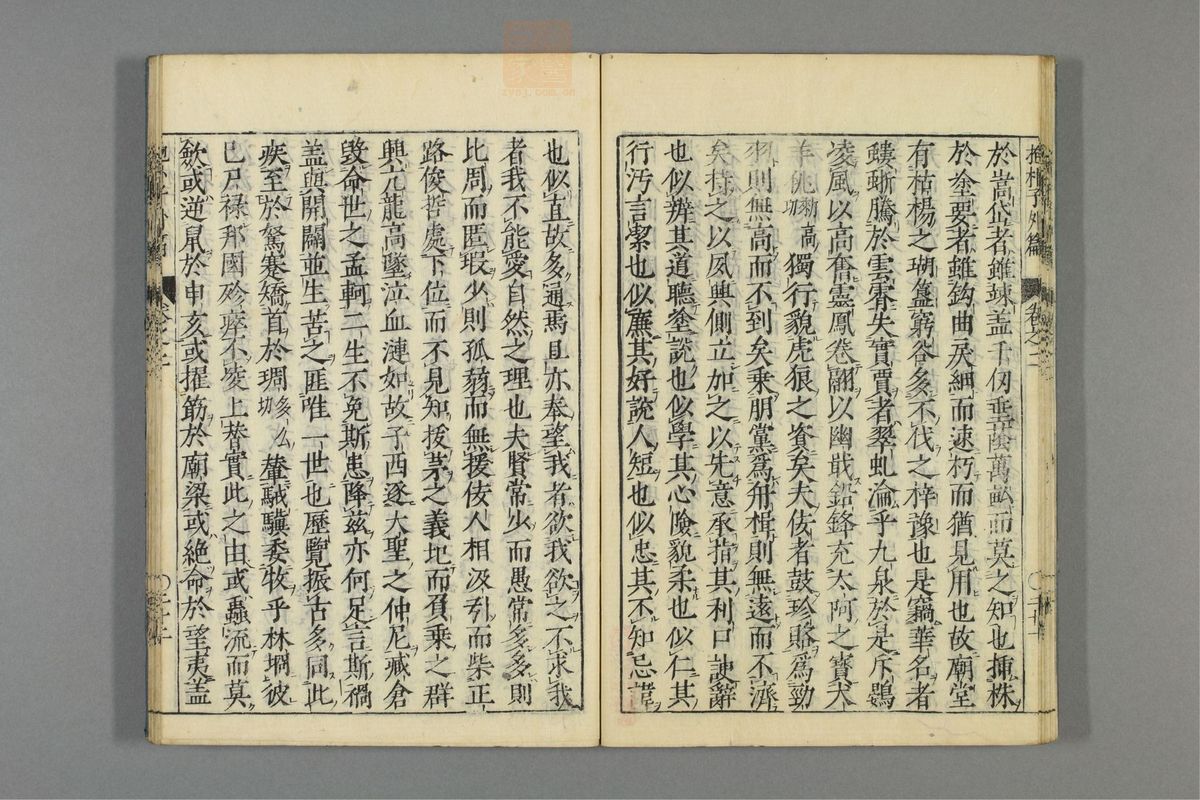 抱朴子外篇 卷之二
於嵩岱者雖竦盖千仞垂蔭萬畝而莫之知也插株
於塗要者雖鈎曲戾細而速朽而猶見用也故廟堂
有枯楊之瑚簋窮谷多不伐之梓豫也是竊華名者
螻蜥騰於雲霄失實賈者翠虬淪乎九泉於是斥鷃
凌風以高奮靈鳳卷翮以幽戢鉛鋒充太阿之寶犬
羊佻 高獨行貌虎狼之資矣夫佞者鼓珍賂爲勁
羽則無高而不到矣乗朋黨爲舟楫則無遠而不濟
矣持之以夙興側立加之以先意承指其利口諛辭
也似辨其道聽塗說也似學其心險貌柔也似仁其
行汚言潔也似廉其好說人短也似忠其不知忌諱
也似直故多通焉且亦奉望我者欲我欲之不求我
者我不能愛自然之理也夫賢常少而愚常多多則
比周而匿瑕少則孤弱而無援佞人相汲引而柴正
路俊哲處下位而不見知拔茅之義圮而負乗之群
興亢龍高墜泣血漣如故子西逐大聖之仲尼臧倉
毀命世之孟軻二生不免斯患降兹亦何足言斯禍
盖與開闢並生苦之匪唯一世也歷覽振古多同此
疾至於駑蹇矯首於琱多么切輦駥驥委牧乎林坰彼
己尸禄邦國殄瘁下凌上替實此之由或蟲流而莫
斂或逆鼠於申亥或擢筋於廟梁或絶命於望夷盖